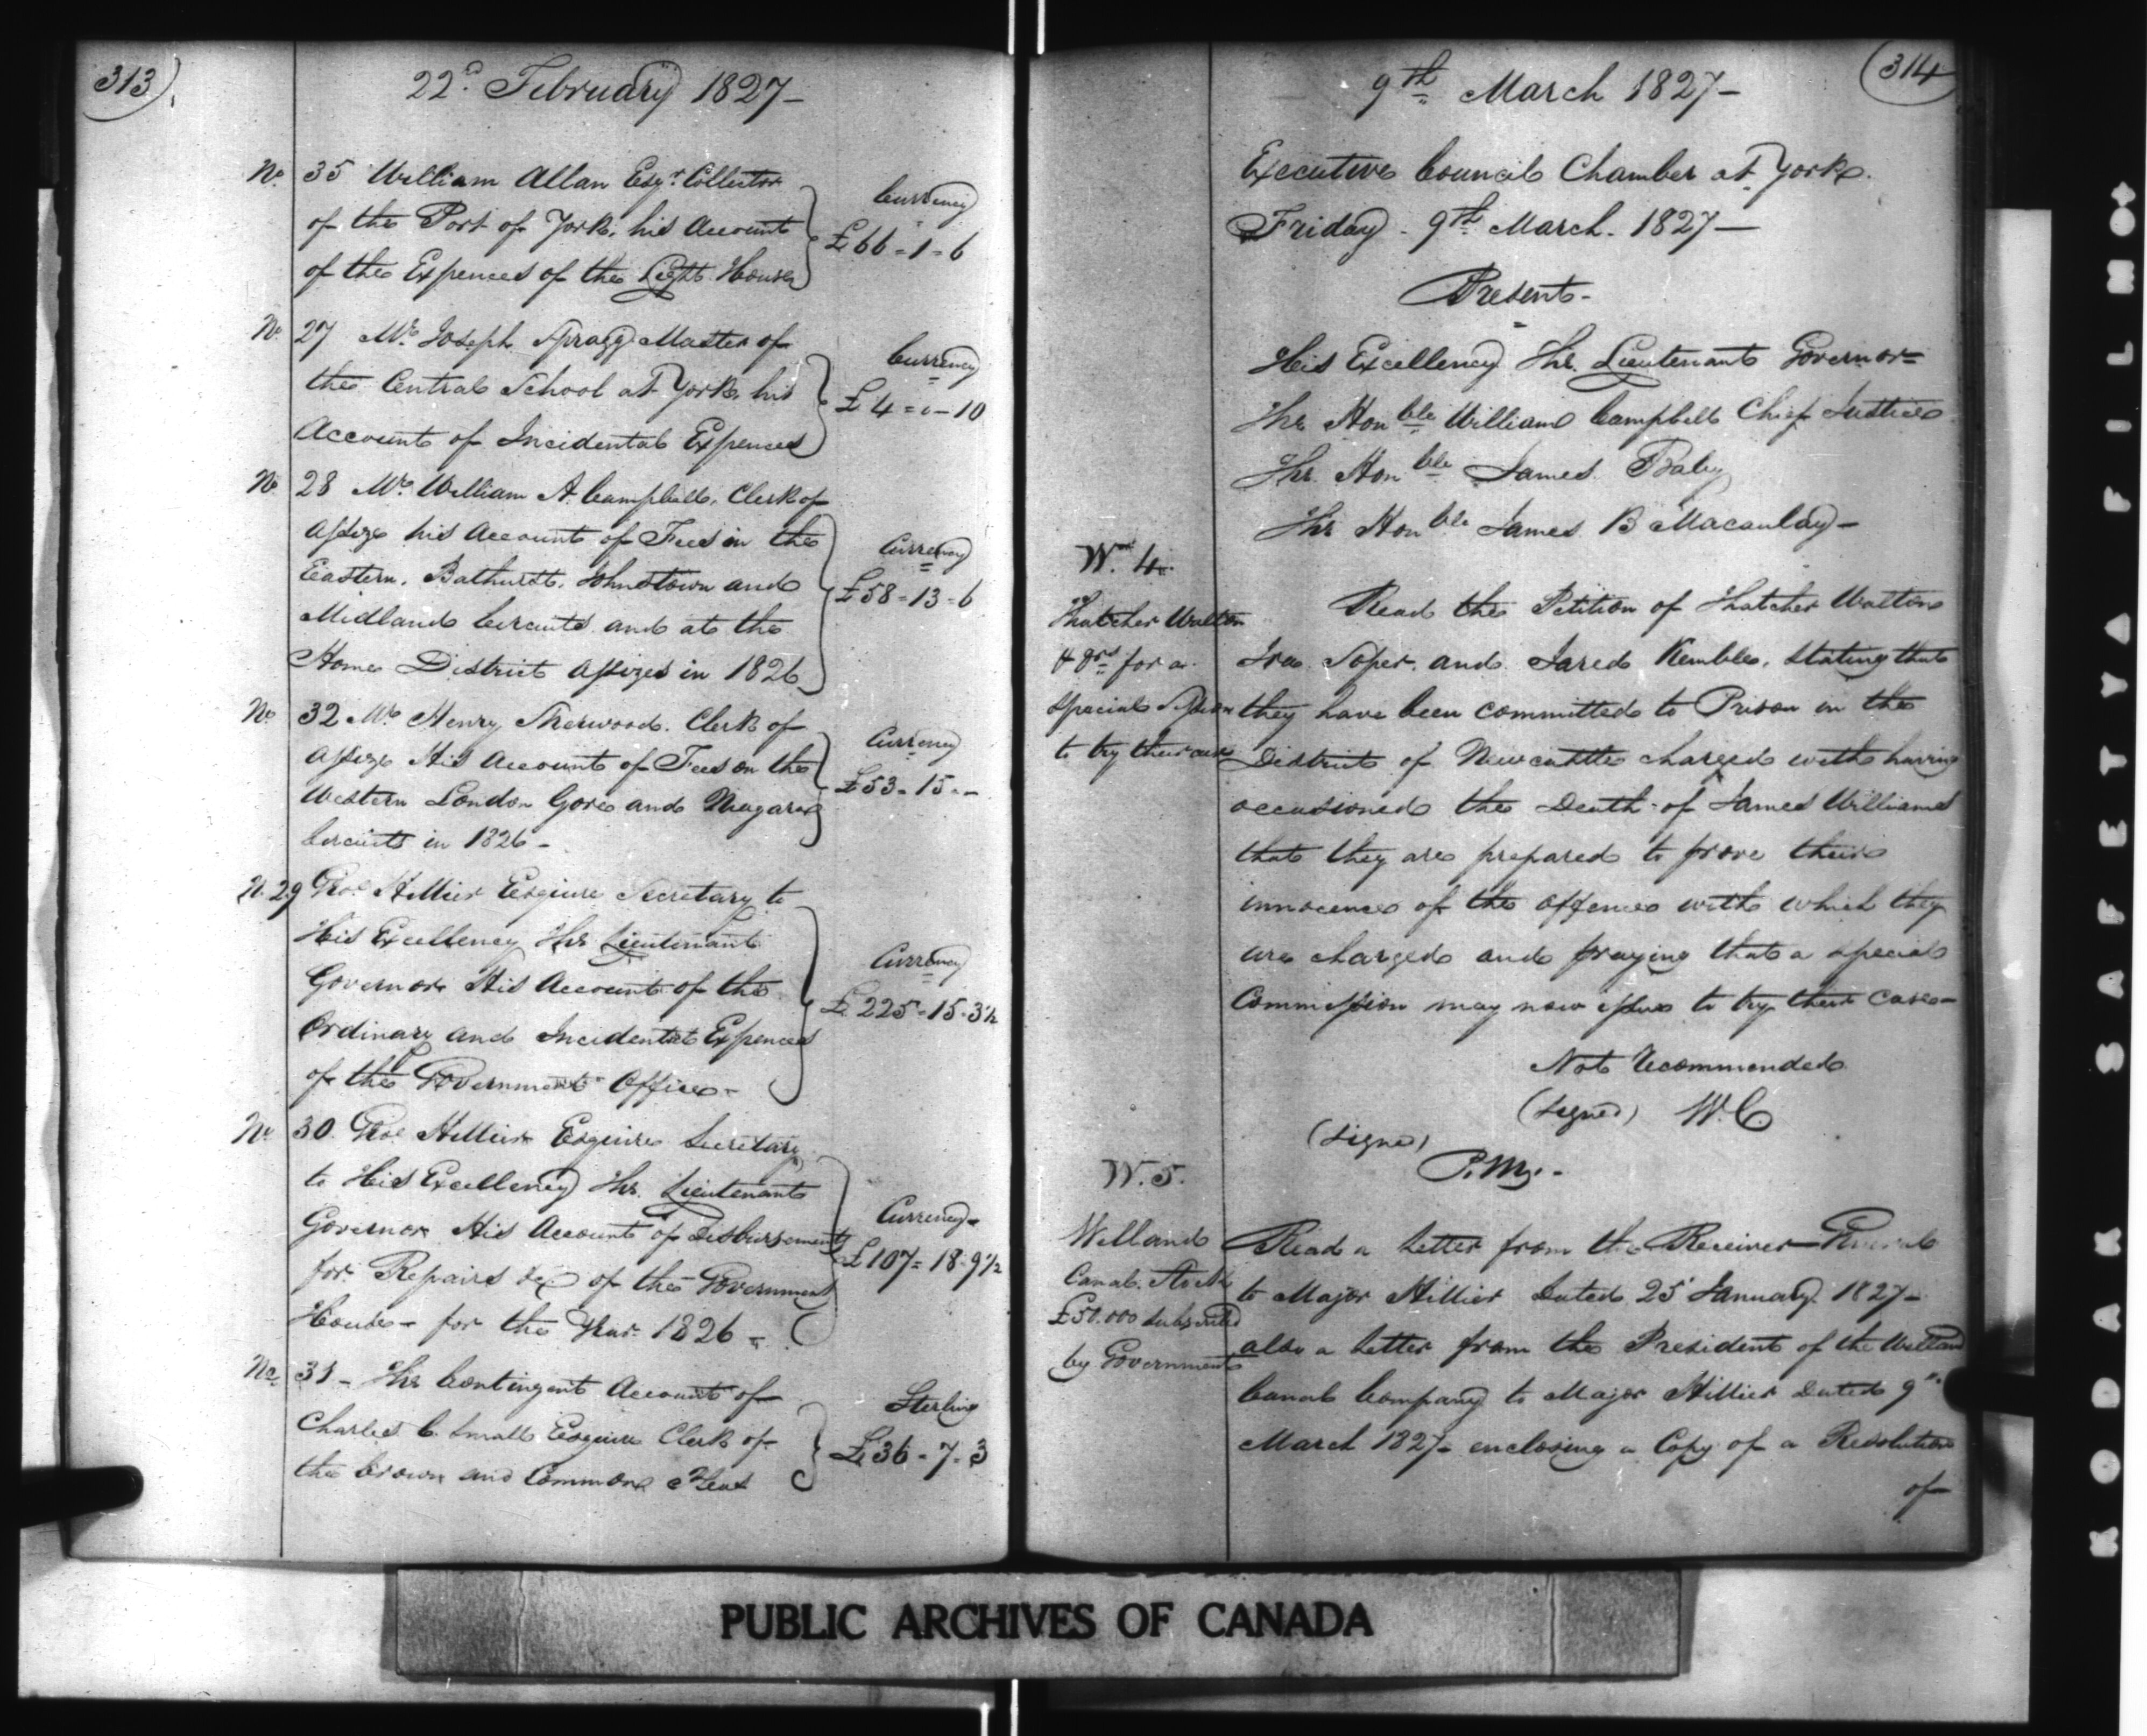 313
22d. February 1827-
No. 35 William Allan Esqr. Collector
of the Port of York, his Account
of the Expences of the Light House
Currency
£66-1-6
No. 27 Mr. Joseph Spragg Master of
the Central School at York, his
Account of Incidental Expences
Currency
£4=0-10
No. 28 Mr. William A. Campbell, Clerk of
Assize his Account of Fees in the
Eastern, Bathurst, Johnstown and
Midland Circuits and at the
Home District Assizes in 1826
Currency
£58-13-6
No. 32 Mr. Henry Sherwood, Clerk of
Assize His Account of Fees on the
Western London Gore and Niagara
Circuits in 1826-
Currency
£53-15--
N. 29 Hillier Esquire Secretary to
His Excellency The Lieutenant
Governor His Account of the
Ordinary and Incidental Expences
of the Government Office-
Currency
£225-15-3½
No. 30. Hillier Esquire Secretary
to His Excellency The Lieutenant
Governor His Account of Disbursements
for Repairs &c of the Government
House- for the Year 1826-
Currency-
£107=18-9½
No. 31- The Contingent Account of
Charles C. Small Esquire Clerk of
the Crown and Common Pleas
Sterling
£36-7-3
314
9th March 1827-
Executive Council Chamber at York.
Friday- 9th March. 1827-
Present-
His Excellency The Lieutenant Governor=
The Honble William Campbell Chief Justice
The Honble James Baby
The Honble James B Macaulay-
W. 4.
Thatcher Walton
& ors for a
Special
to try their case
Read the Petition of Thatcher Walton
Ira Soper, and Jared Kemble, stating that
they have been committed to Prison in the
District of Newcastle charged with having
occasioned the Death of James Williams
that they are prepared to prove their
innocence of the offence with which they
are charged and praying that a special
Commission may now issue to try their case-
Not Recommended
(signed) W.C.
(signed)
P.M.-
W. 5.
Welland
Canal Stock
£50.000 subscribed
by Government
Read a letter from the Receiver General
to Major Hillier Dated 25 January 1827-
also a letter from the President of the Welland
Canal Company to Major Hillier Dated 9th
March 1827- enclosing a Copy of a Resolution
of
PUBLIC ARCHIVES OF CANADA
KODAK SAFETY FILM